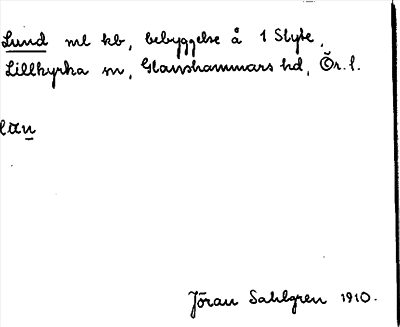 Lund ml kb, bebyggelse å 1 Slyte,
Lillkyrka sn, Glanshammars hd, Ör. l.
Jöran Sahlgren 1910.